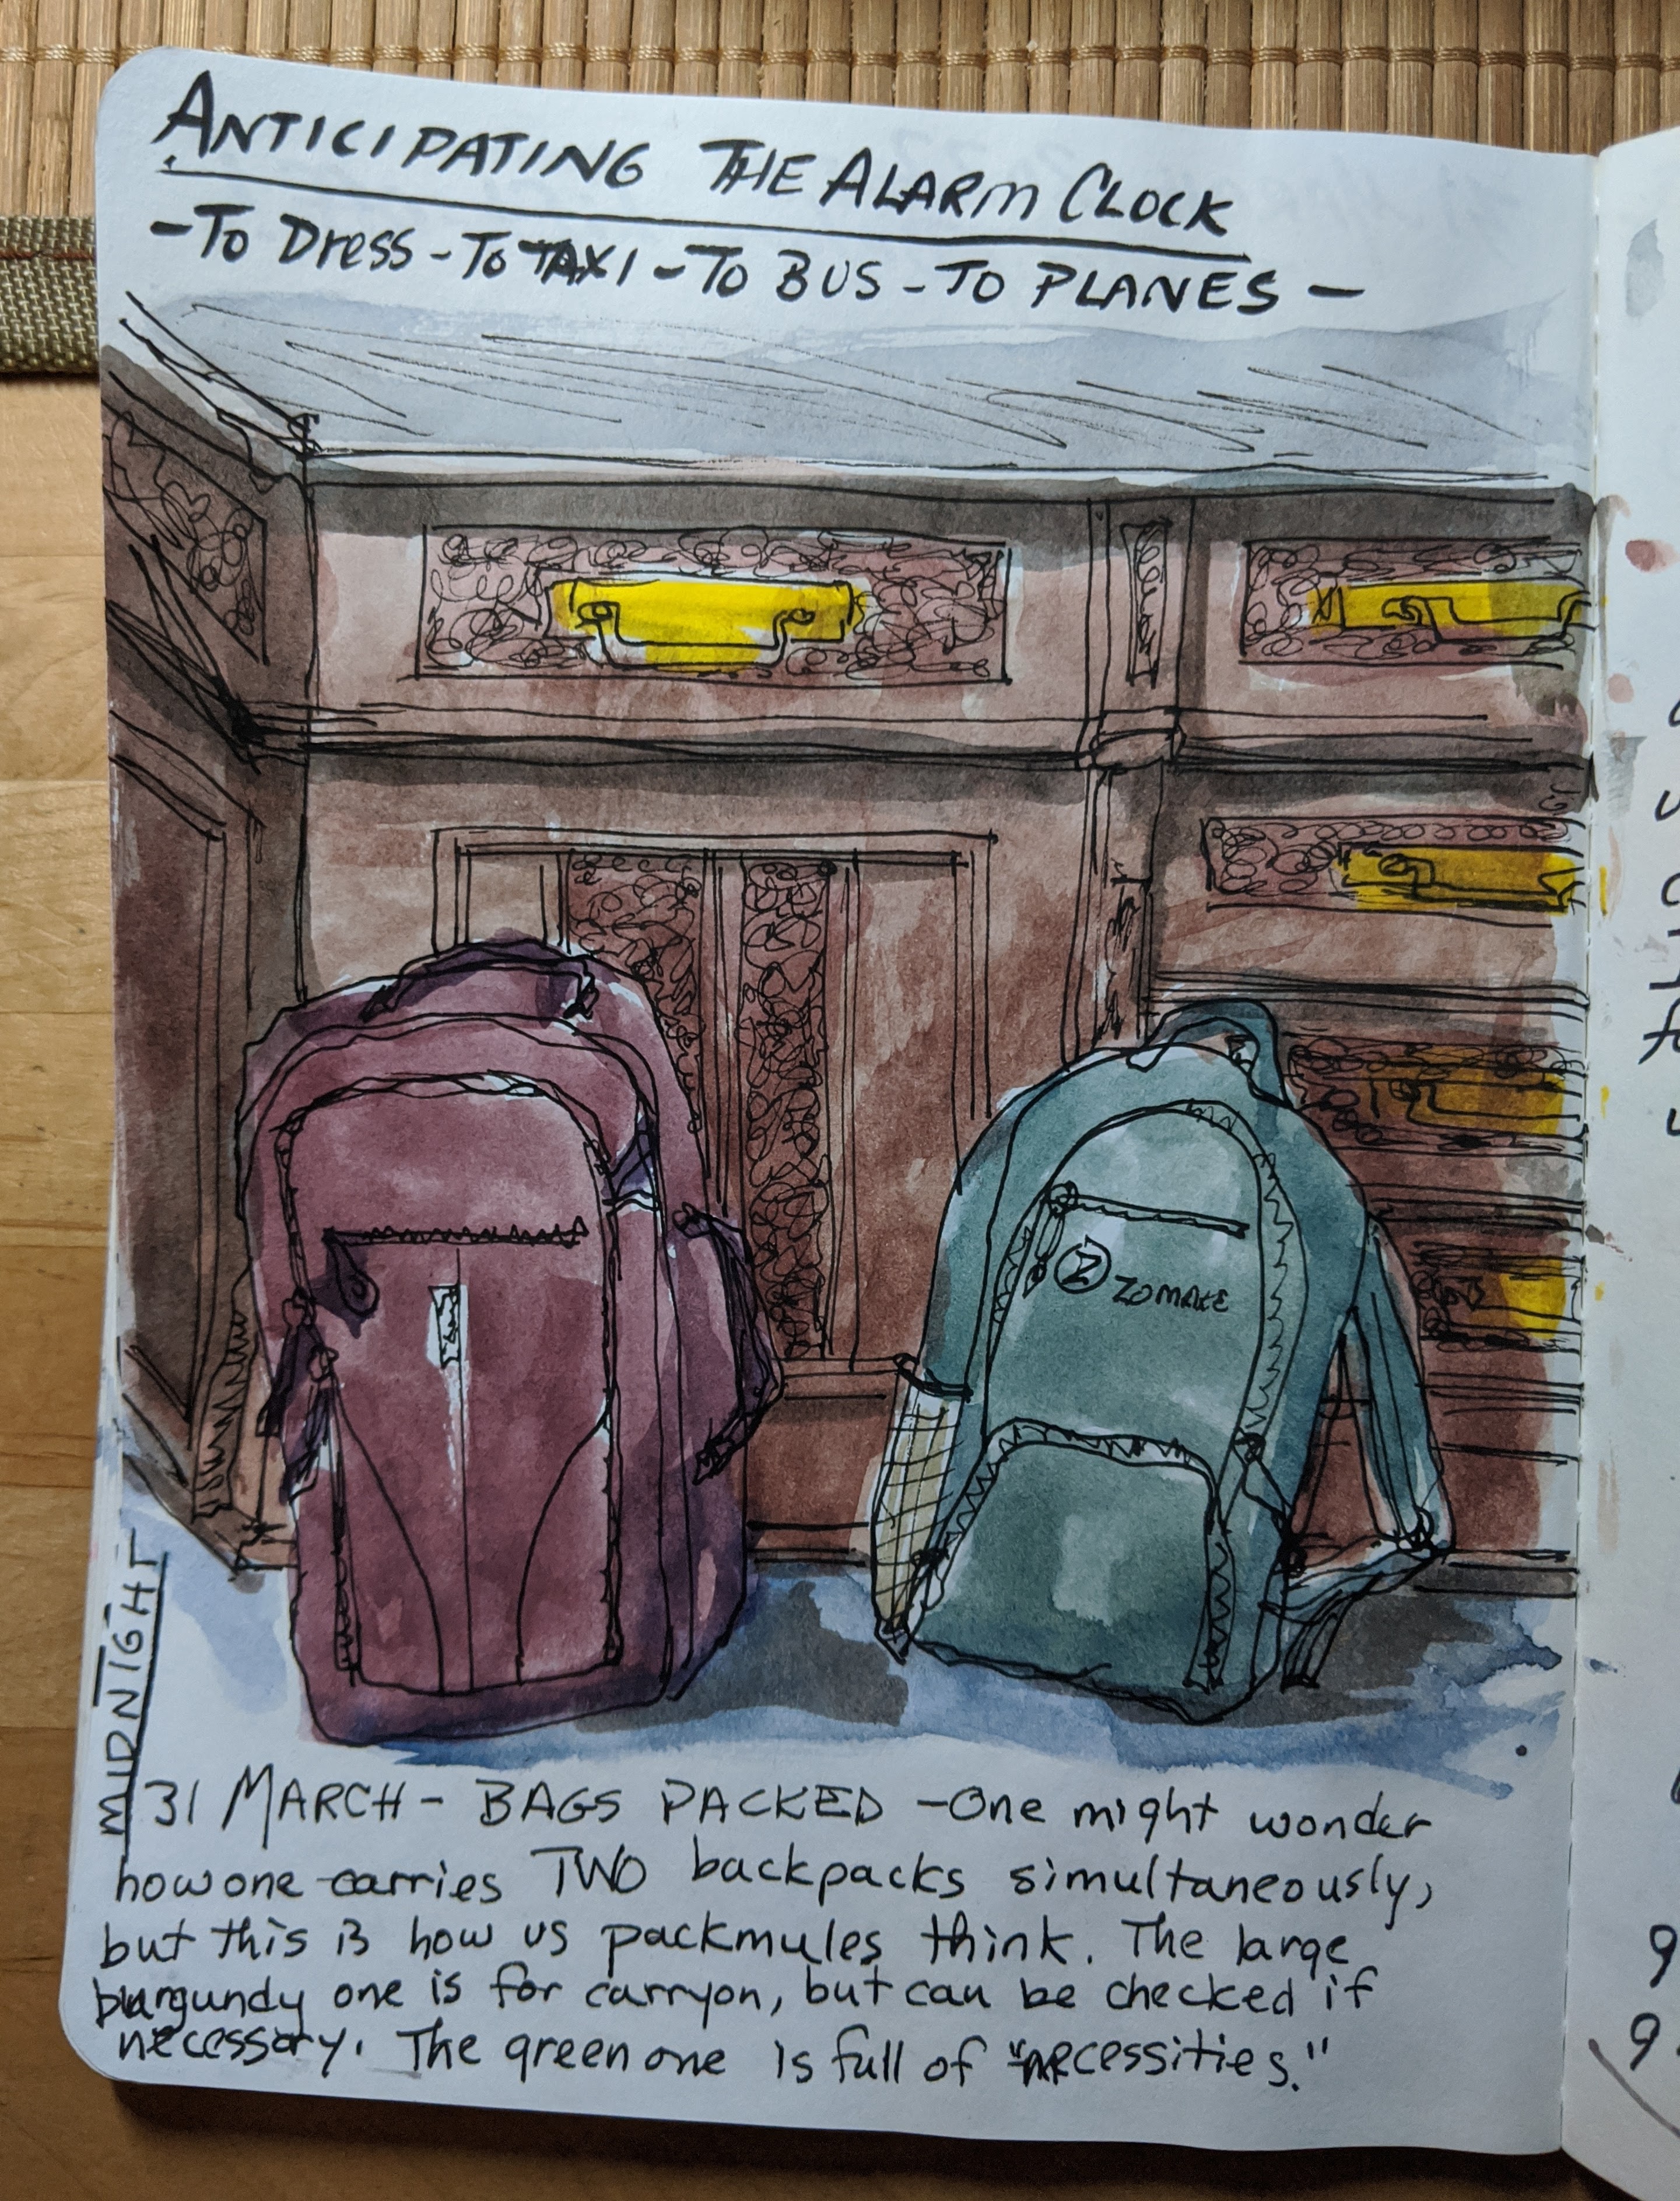 ANTICIPATING THE ALARM CLOCK
-To Dress - To TAXI - To BUS - TO PLANES -
Z ZOMAKE
MIDNIGHT
31 MARCH - BAGS PACKED - One might wonder
how one carries TWO backpacks simultaneously,
but this is how us packmules think. The large
burgundy one is for carryon, but can be checked if
necessary. The green one is full of "necessities."
9
9